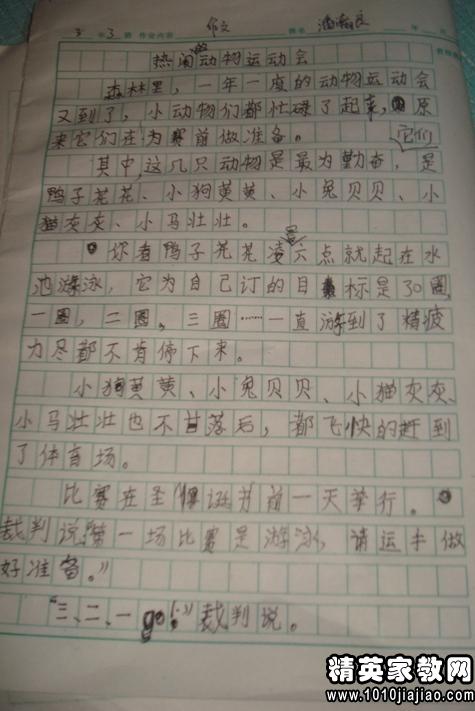 3 年 3 册 作业内容 作文 姓名 潘 年
热闹的动物运动会
森林里，一年一度的动物运动会
又到了，小动物们都忙碌了起来，原
来它们在为赛前做准备。
它们
其中，这几只动物是最为勤奋，是
鸭子花花、小狗黄黄、小兔贝贝、小
猫灰灰、小马壮壮。
你看鸭子花花凌晨六点就起在水
池游泳，它为自己订的目标是30圈，
一圈，二圈，三圈……一直游到了精疲
力尽都不肯停下来。
小狗黄黄、小兔贝贝、小猫灰灰、
小马壮壮也不甘落后，都飞快的赶到
了体育场。
比赛在圣诞节前一天举行。
裁判说“第一场比赛是游泳，请运手做
好准备。”
“三、二、一go！”裁判说。
精英家教网
www.1010jiajiao.com